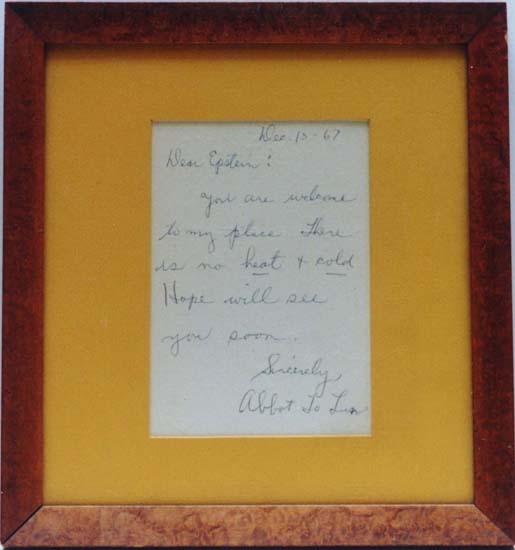 Dec. 13-67
Dear Epstein:
You are welcome
to my place. There
is no heat + cold
Hope will see
you soon.
Sincerely
Abbot Lo Tun